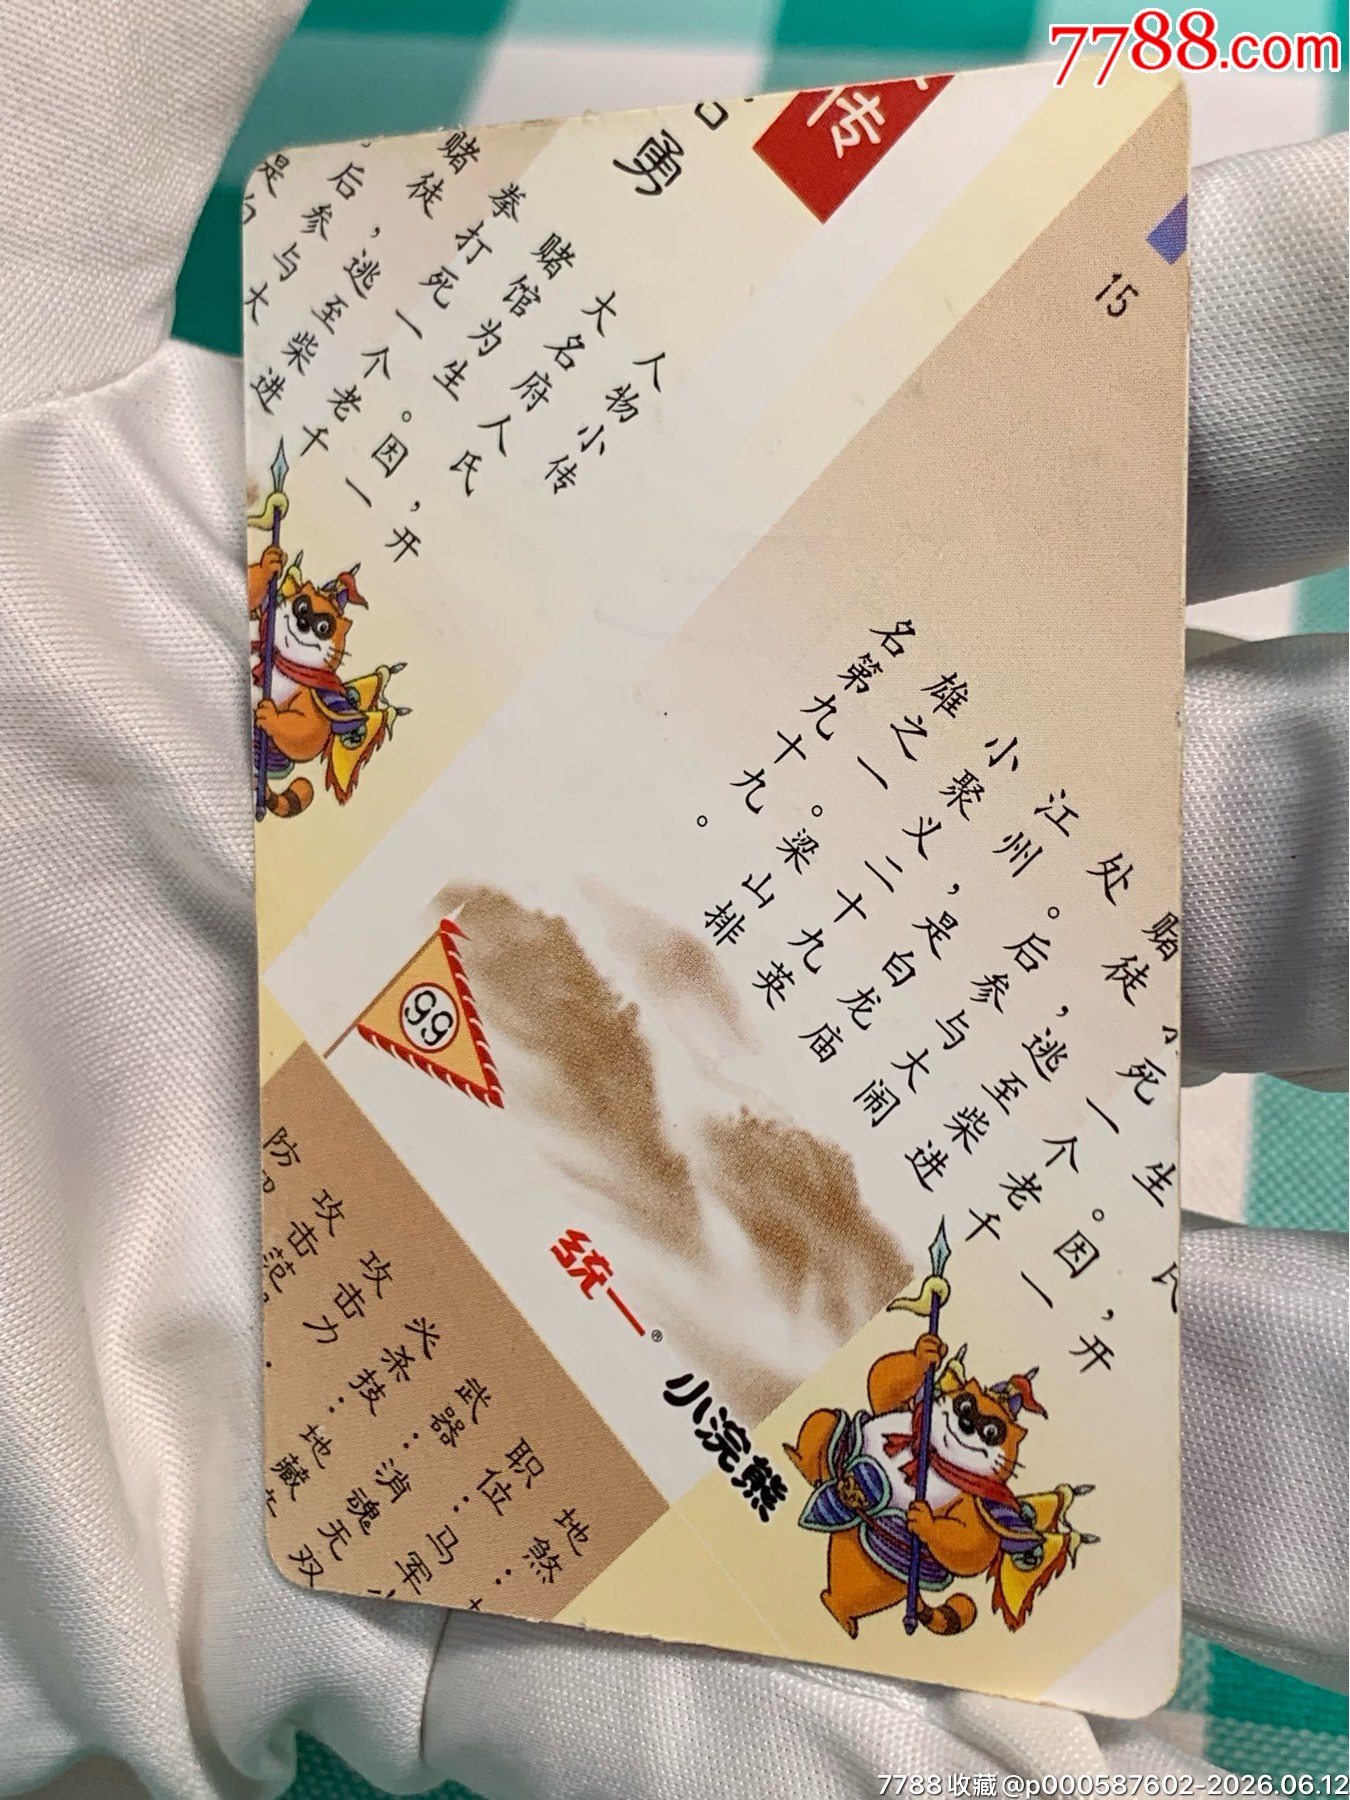 传
勇
人物小传
大名府人氏，开
赌馆为生。因一
拳打死一个老千
赌徒，逃至柴进
。后参与大
是白
15
氏，开
生。因一
死一个老千
赌徒，逃至柴进
处。后参与大闹
江州，是白龙庙
小聚义二十九英
雄之一。梁山排
名第九十九。
99
统一®
小浣熊
地煞：
职位：马军
武器：消魂无双
杀技：地藏
攻击力
攻击范
防
7788.com
7788收藏 @p000587602-2026.06.12